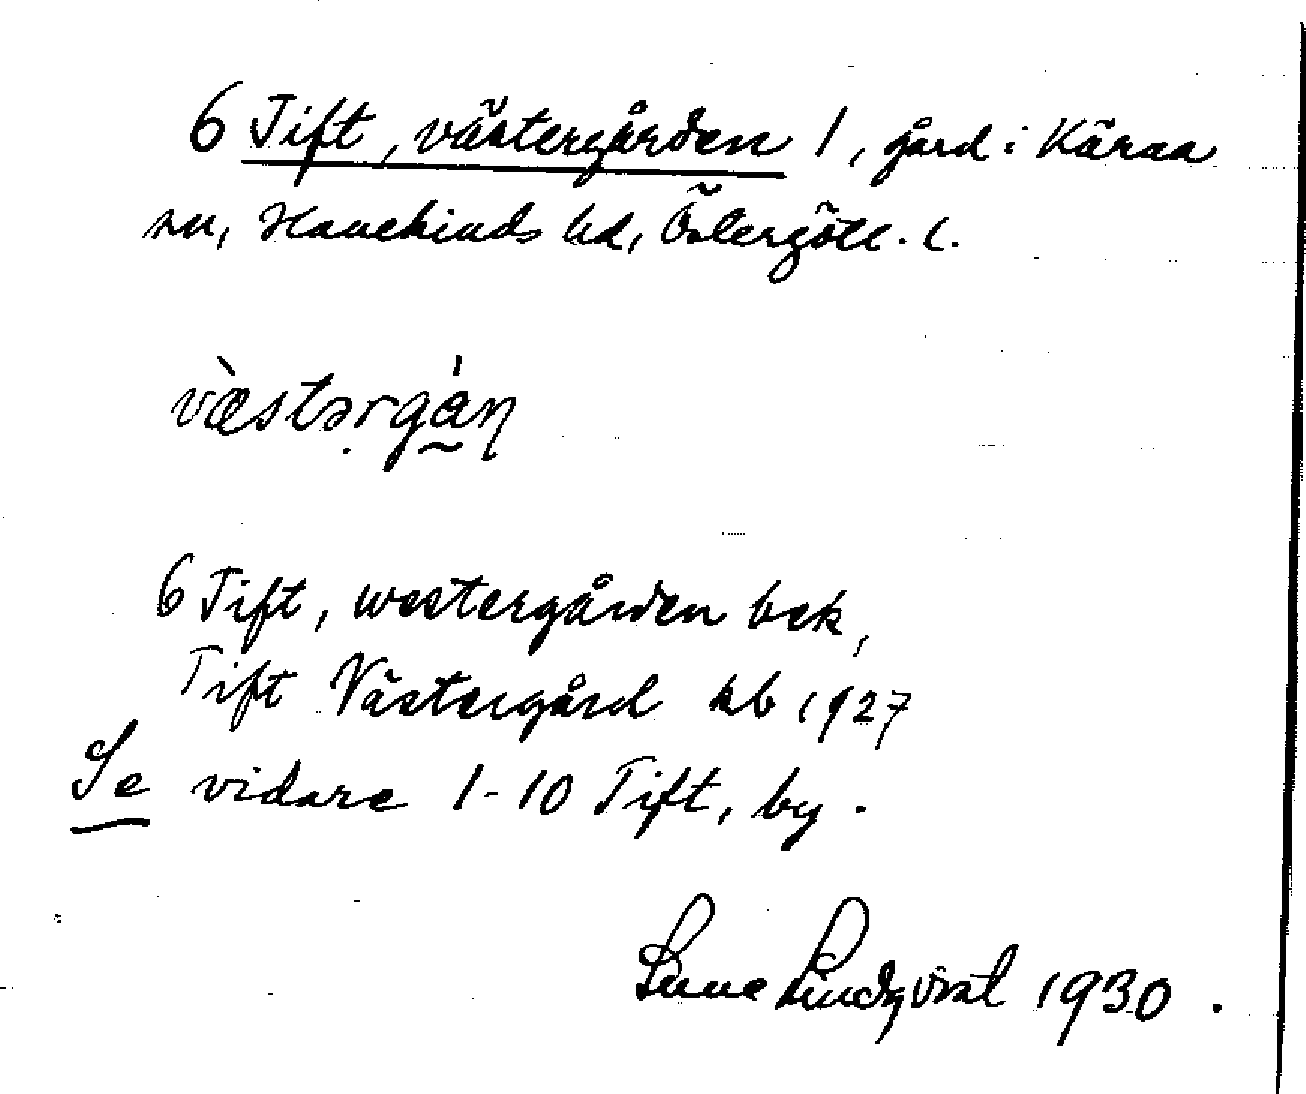 6 Tift, västergården 1, gård i Kärna
sn, Hanekinds hd, Östergötl. l.
vɑ̀stərgá̰ṇ
6 Tift, westergården bek,
Tift Västergård kb 1927
Se vidare 1-10 Tift, by.
Sune Lindqvist 1930.